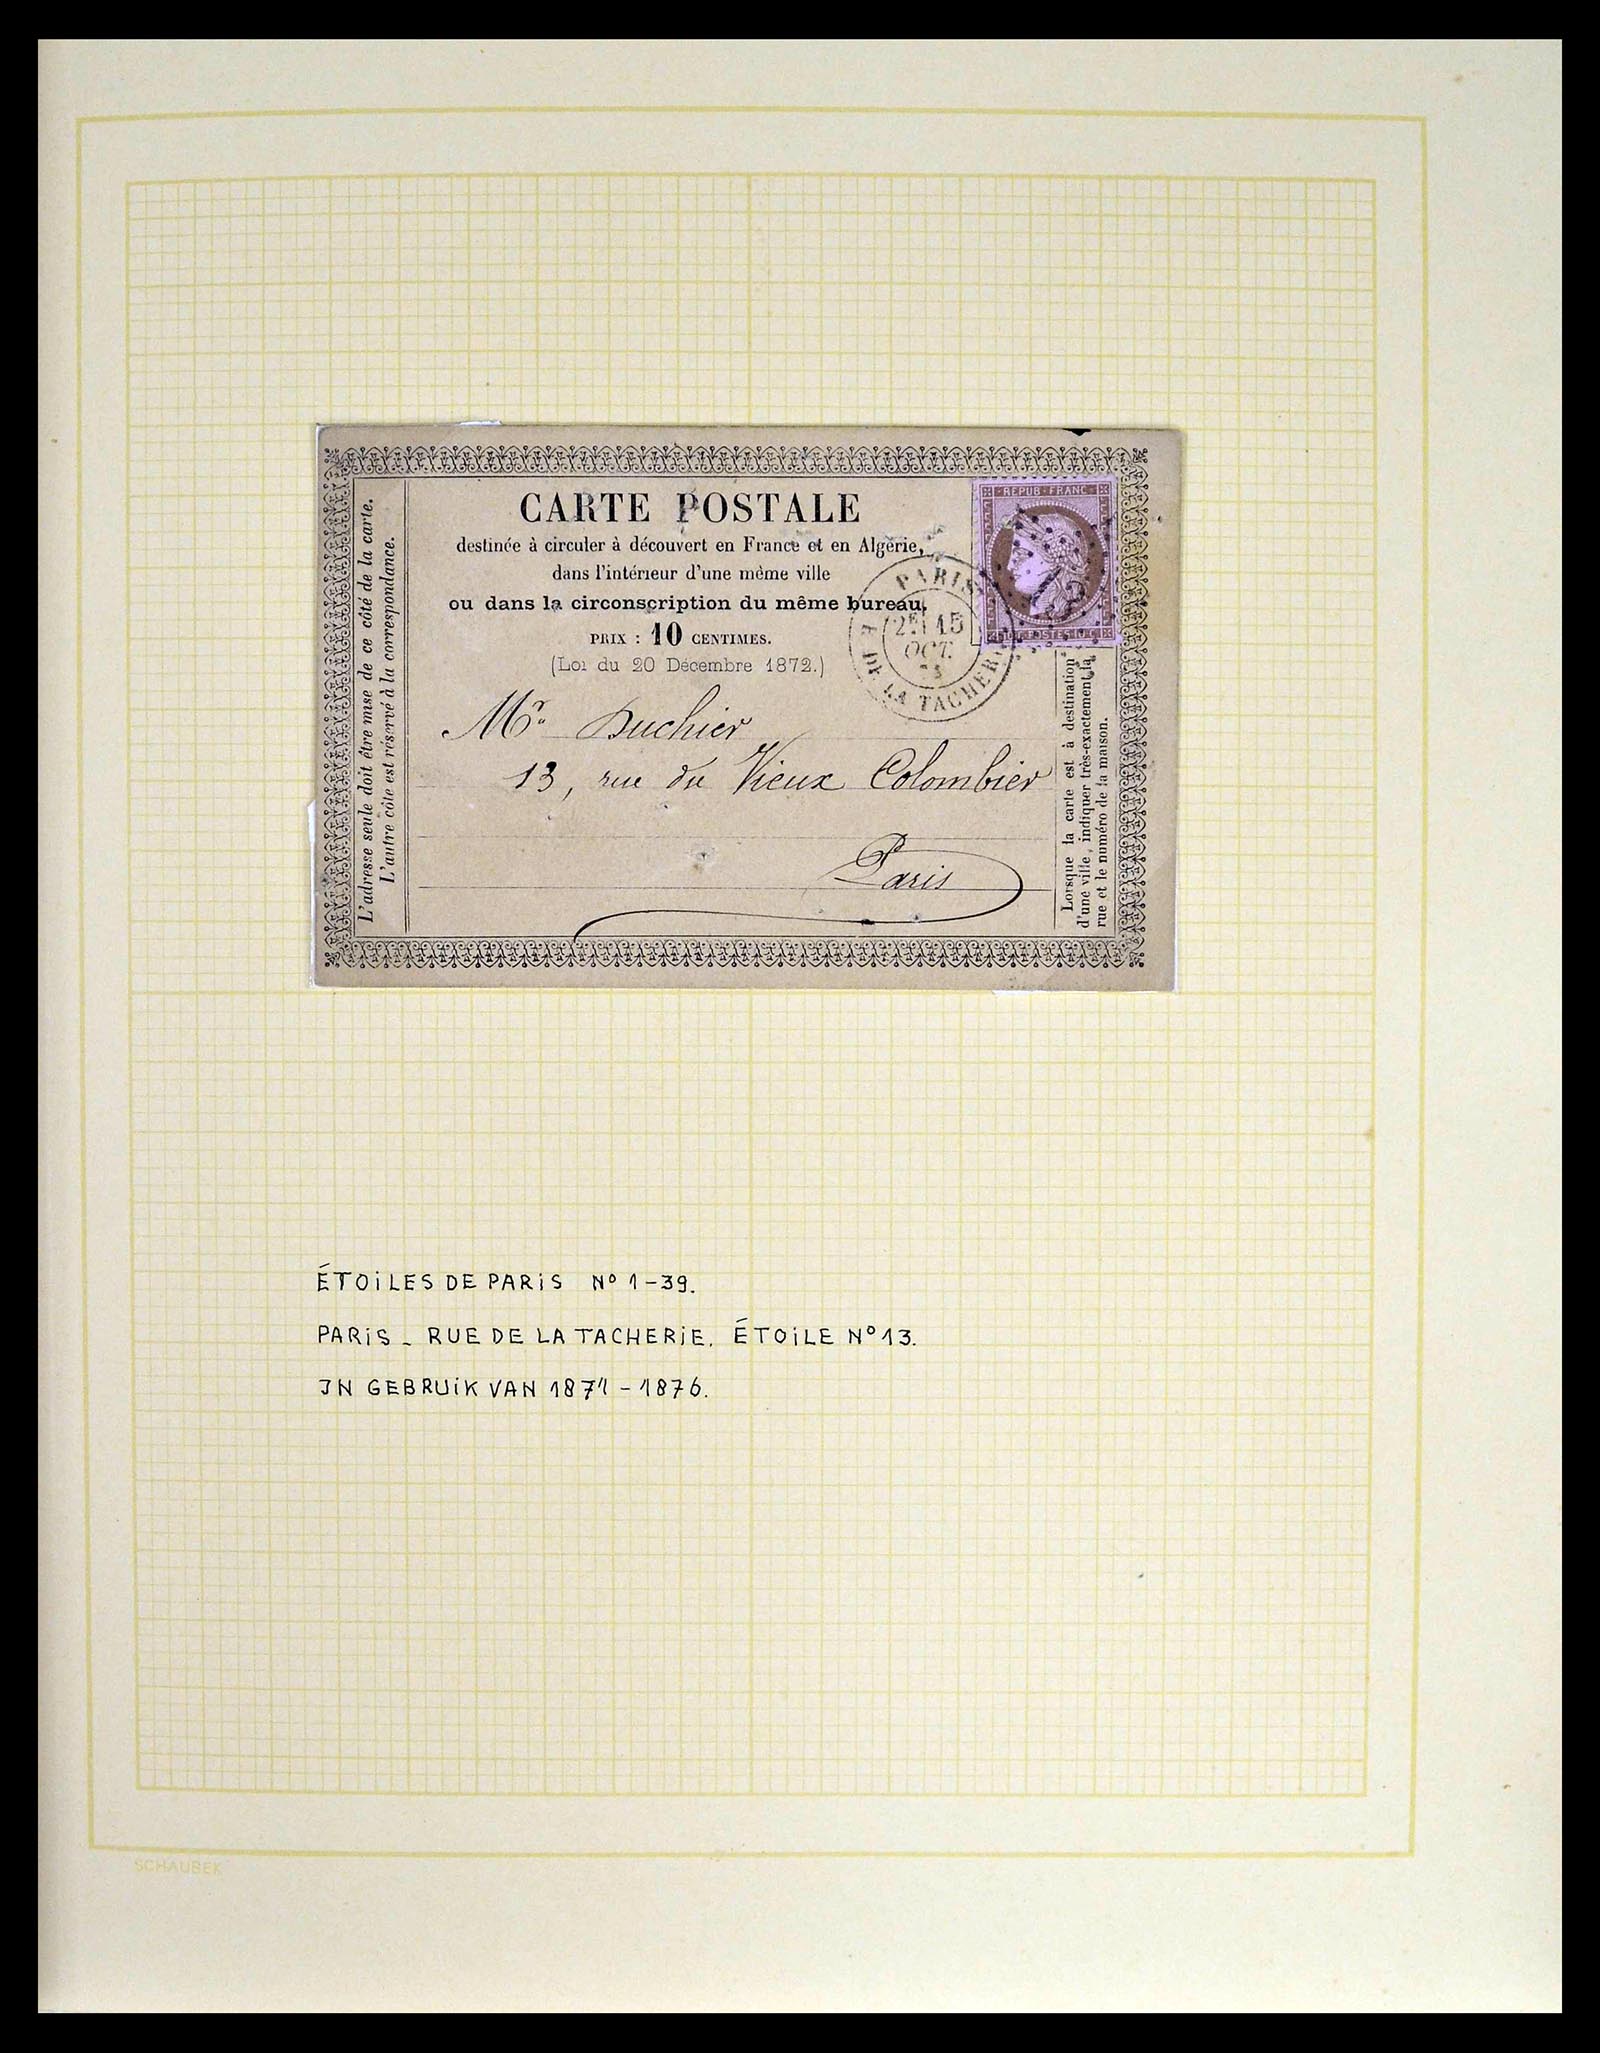 CARTE POSTALE
destinée à circuler à découvert en France et en Algérie,
dans l'intérieur d'une même ville
ou dans la circonscription du même bureau.
PRIX : 10 CENTIMES.
(Loi du 20 Décembre 1872.)
L'adresse seule doit être mise de ce côté de la carte.
L'autre côte est réservé à la correspondance.
REPUB FRANC
10 C POSTES 10 C
PARIS
R. DE LA TACHERIE
2E 15
OCT.
Mr. Duchier
13, rue du Vieux Colombier
Paris
Lorsque la carte est à destination
d'une ville, indiquer très-exactement la
rue et le numéro de la maison.
ÉTOILES DE PARIS No 1-39.
PARIS - RUE DE LA TACHERIE. ÉTOILE No 13.
IN GEBRUIK VAN 1871 - 1876.
SCHAUBEK